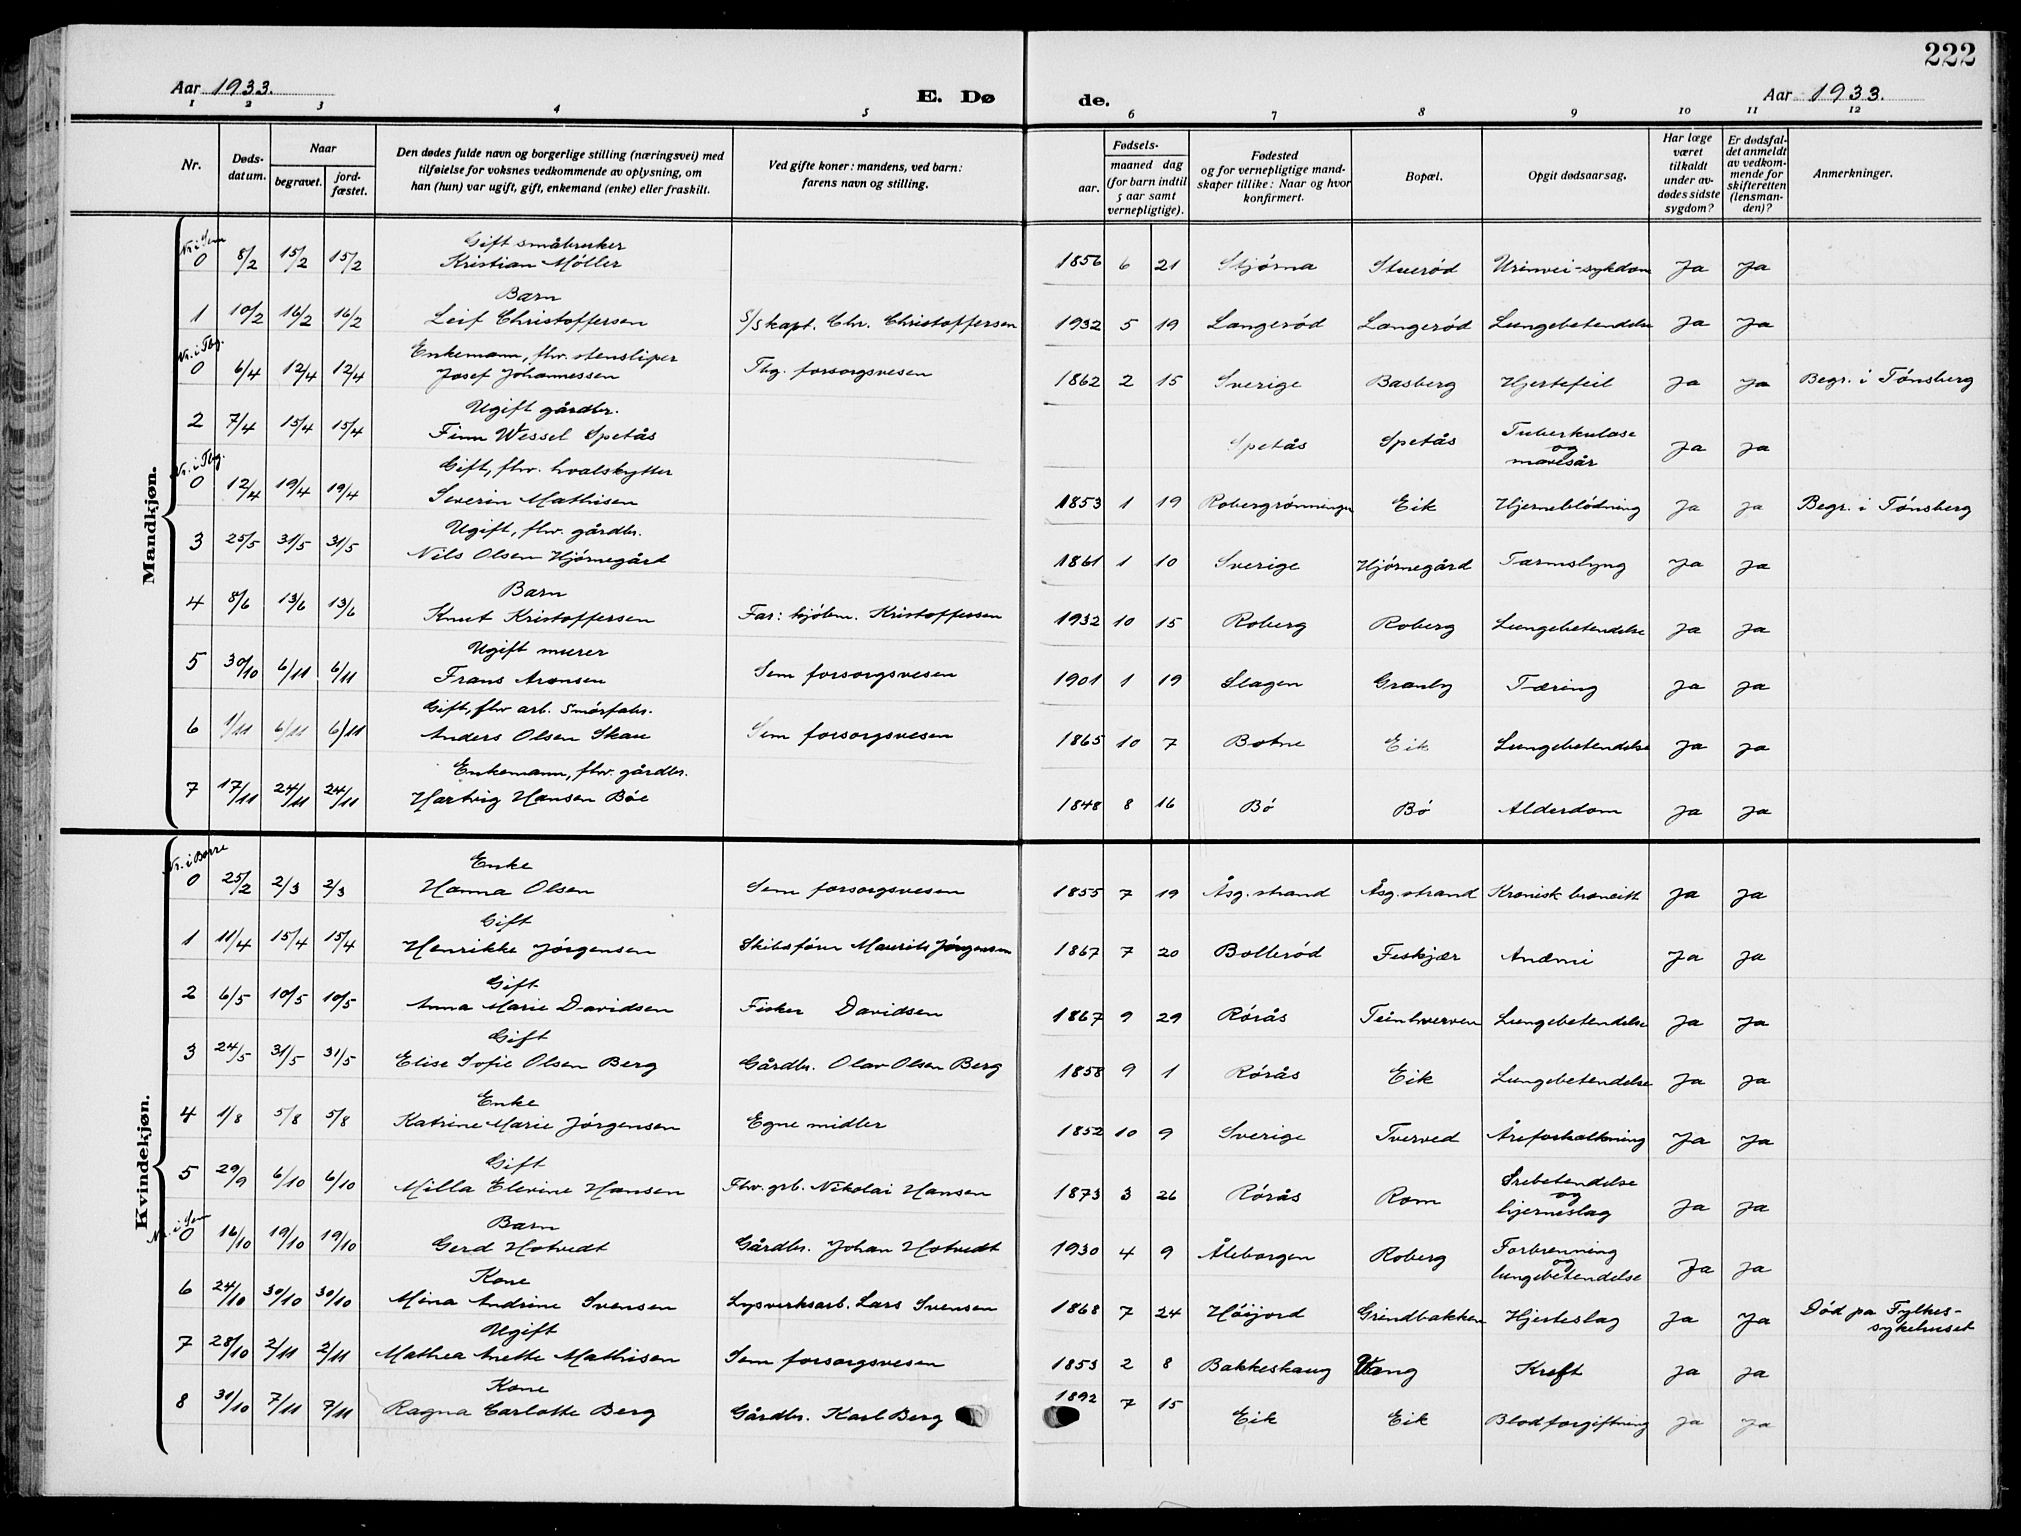 222
Aar 1933.
E. Dø
de.
Aar 1933.
1 2 3 4 5 6 7 8 9 10 11 12
Nr.
Døds-datum.
Naar
begravet.
jord-fæstet.
Den dødes fulde navn og borgerlige stilling (næringsvei) med tilføielse for voksnes vedkommende av oplysning, om han (hun) var ugift, gift, enkemand (enke) eller fraskilt.
Ved gifte koner: mandens, ved barn: farens navn og stilling.
Fødsels-
aar.
maaned dag
(for barn indtil 5 aar samt vernepligtige).
Fødested og for vernepligtige mand-skaper tillike: Naar og hvor konfirmert.
Bopæl.
Opgit dødsaarsag.
Har læge været tilkaldt under av-dødes sidste sygdom?
Er dødsfal-det anmeldt av vedkom-mende for skifteretten (lensman-den)?
Anmerkninger.
Mandkjøn.
Nr. i Sem
0 8/2 15/2 15/2 Gift småbruker
Kristian Møller 1856 6 21 Stjørna Stuerød Urinvei-sykdom Ja Ja
1 10/2 16/2 16/2 Barn
Leif Christoffersen S/Skapt. Chr. Christoffersen 1932 5 19 Langerød Langerød Lungebetendelse Ja Ja
Nr. i Tbg.
0 6/4 12/4 12/4 Enkemann, fhv. stensliper
Josef Johannessen Tbg. forsorgsvesen 1862 2 15 Sverige Basberg Hjertefeil Ja Ja Begr. i Tønsberg
2 7/4 15/4 15/4 Ugift gårdbr.
Finn Wessel Spetås Spetås Spetås Tuberkulose
og
mavesår Ja Ja
Nr. i Tbg.
0 12/4 19/4 19/4 Gift, fhv. hvalskytter
Severin Mathisen 1853 1 19 Robergrønningen Eik Hjerneblødning Ja Ja Begr. i Tønsberg
3 25/5 31/5 31/5 Ugift, fhv. gårdbr.
Nils Olsen Hjørnegård 1861 1 10 Sverige Hjørnegård Tarmslyng Ja Ja
4 8/6 13/6 13/6 Barn
Knut Kristoffersen Far: kjøbm. Kristoffersen 1932 10 15 Roberg Roberg Lungebetendelse Ja Ja
5 30/10 6/11 6/11 Ugift murer
Frans Aronsen Sem forsorgsvesen 1901 1 19 Slagen Granly Tæring Ja Ja
6 1/11 6/11 6/11 Gift, fhv arb. Smørfabr.
Anders Olsen Skau Sem forsorgsvesen 1865 10 7 Botne Eik Lungebetendelse Ja Ja
7 17/11 24/11 24/11 Enkemann, fhv. gårdbr.
Hartvig Hansen Bøe 1848 8 16 Bø Bø Alderdom Ja Ja
Kvindekjøn.
Nr. i Borre
0 25/2 2/3 2/3 Enke
Hanna Olsen Sem forsorgsvesen 1855 7 19 Åsg.strand Åsg.strand Kronisk broncitt Ja Ja
1 11/4 15/4 15/4 Gift
Henrikke Jørgensen Skibsfører Maurits Jørgensen 1867 7 20 Bollerød Feskjær Anæmi Ja Ja
2 6/5 10/5 10/5 Gift
Anna Marie Davidsen Fisker Davidsen 1867 9 29 Rørås Teinhverven Lungebetendelse Ja Ja
3 24/5 31/5 31/5 Gift
Elise Sofie Olsen Berg Gårdbr. Olav Olsen Berg 1858 9 1 Rørås Eik Lungebetendelse Ja Ja
4 1/8 5/8 5/8 Enke
Katrine Marie Jørgensen Egne midler 1852 10 9 Sverige Tverved Åreforkalkning Ja Ja
5 29/9 6/10 6/10 Gift
Milla Elevine Hansen Fhv. grb. Nikolai Hansen 1873 3 26 Rørås Rom Årebetendelse
og
hjerneslag Ja Ja
Nr. i Sem
0 16/10 19/10 19/10 Barn
Gerd Hotvedt Gårdbr. Johan Hotvedt 1930 4 9 Åleborgen Roberg Forbrenning
og
lungebetendelse Ja Ja
6 24/10 30/10 30/10 Kone
Mina Andrine Svensen Lysverksarb. Lars Svensen 1868 7 24 Høijord Grindbakken Hjerteslag Ja Ja Død pa Fylkes-
sykehuset
7 28/10 2/11 2/11 Ugift
Mathea Anette Mathisen Sem forsorgsvesen 1853 2 8 Bakkeskaug Vang Kreft Ja Ja
8 31/10 7/11 7/11 Kone
Ragna Carlotte Berg Gårdbr. Karl Berg 1892 7 15 Eik Eik Blodforgiftning Ja Ja